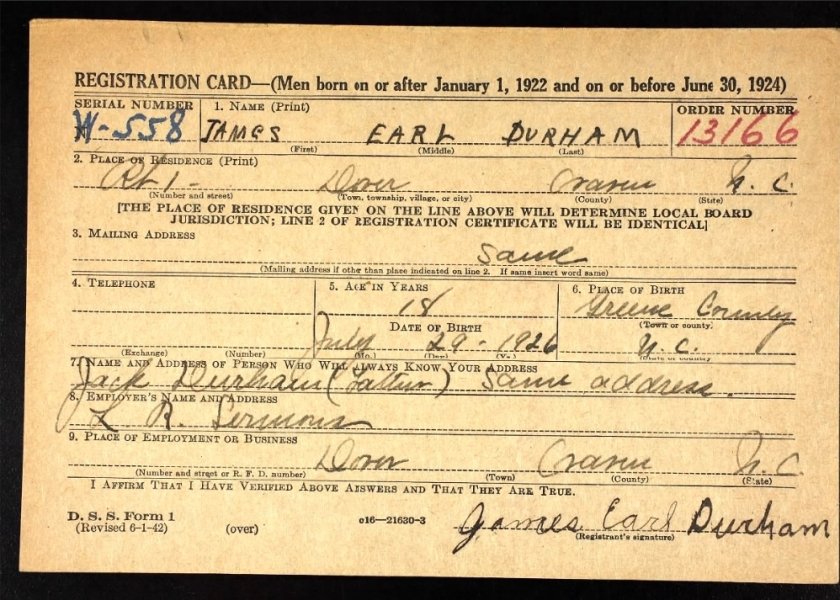 REGISTRATION CARD—(Men born on or after January 1, 1922 and on or before June 30, 1924)
SERIAL NUMBER 1. NAME (Print) ORDER NUMBER
W-558 JAMES EARL DURHAM 13166
(First) (Middle) (Last)
2. PLACE OF RESIDENCE (Print)
Rt 1- Dover Craven N. C.
(Number and street) (Town, township, village, or city) (County) (State)
[THE PLACE OF RESIDENCE GIVEN ON THE LINE ABOVE WILL DETERMINE LOCAL BOARD
JURISDICTION; LINE 2 OF REGISTRATION CERTIFICATE WILL BE IDENTICAL]
3. MAILING ADDRESS
Same
(Mailing address if other than place indicated on line 2. If same insert word same)
4. TELEPHONE 5. AGE IN YEARS 6. PLACE OF BIRTH
18 Greene County
DATE OF BIRTH (Town or county)
July 29-1926 N. C.
(Exchange) (Number) (Mo.) (Day) (Yr.) (State or country)
7. NAME AND ADDRESS OF PERSON WHO WILL ALWAYS KNOW YOUR ADDRESS
Jack Durham (father) Same address.
8. EMPLOYER'S NAME AND ADDRESS
L R. Sermons
9. PLACE OF EMPLOYMENT OR BUSINESS
Dover Craven N. C.
(Number and street or R. F. D. number) (Town) (County) (State)
I AFFIRM THAT I HAVE VERIFIED ABOVE ANSWERS AND THAT THEY ARE TRUE.
D. S. S. Form 1
(Revised 6-1-42) (over) c16—21630-3 James Earl Durham
(Registrant's signature)